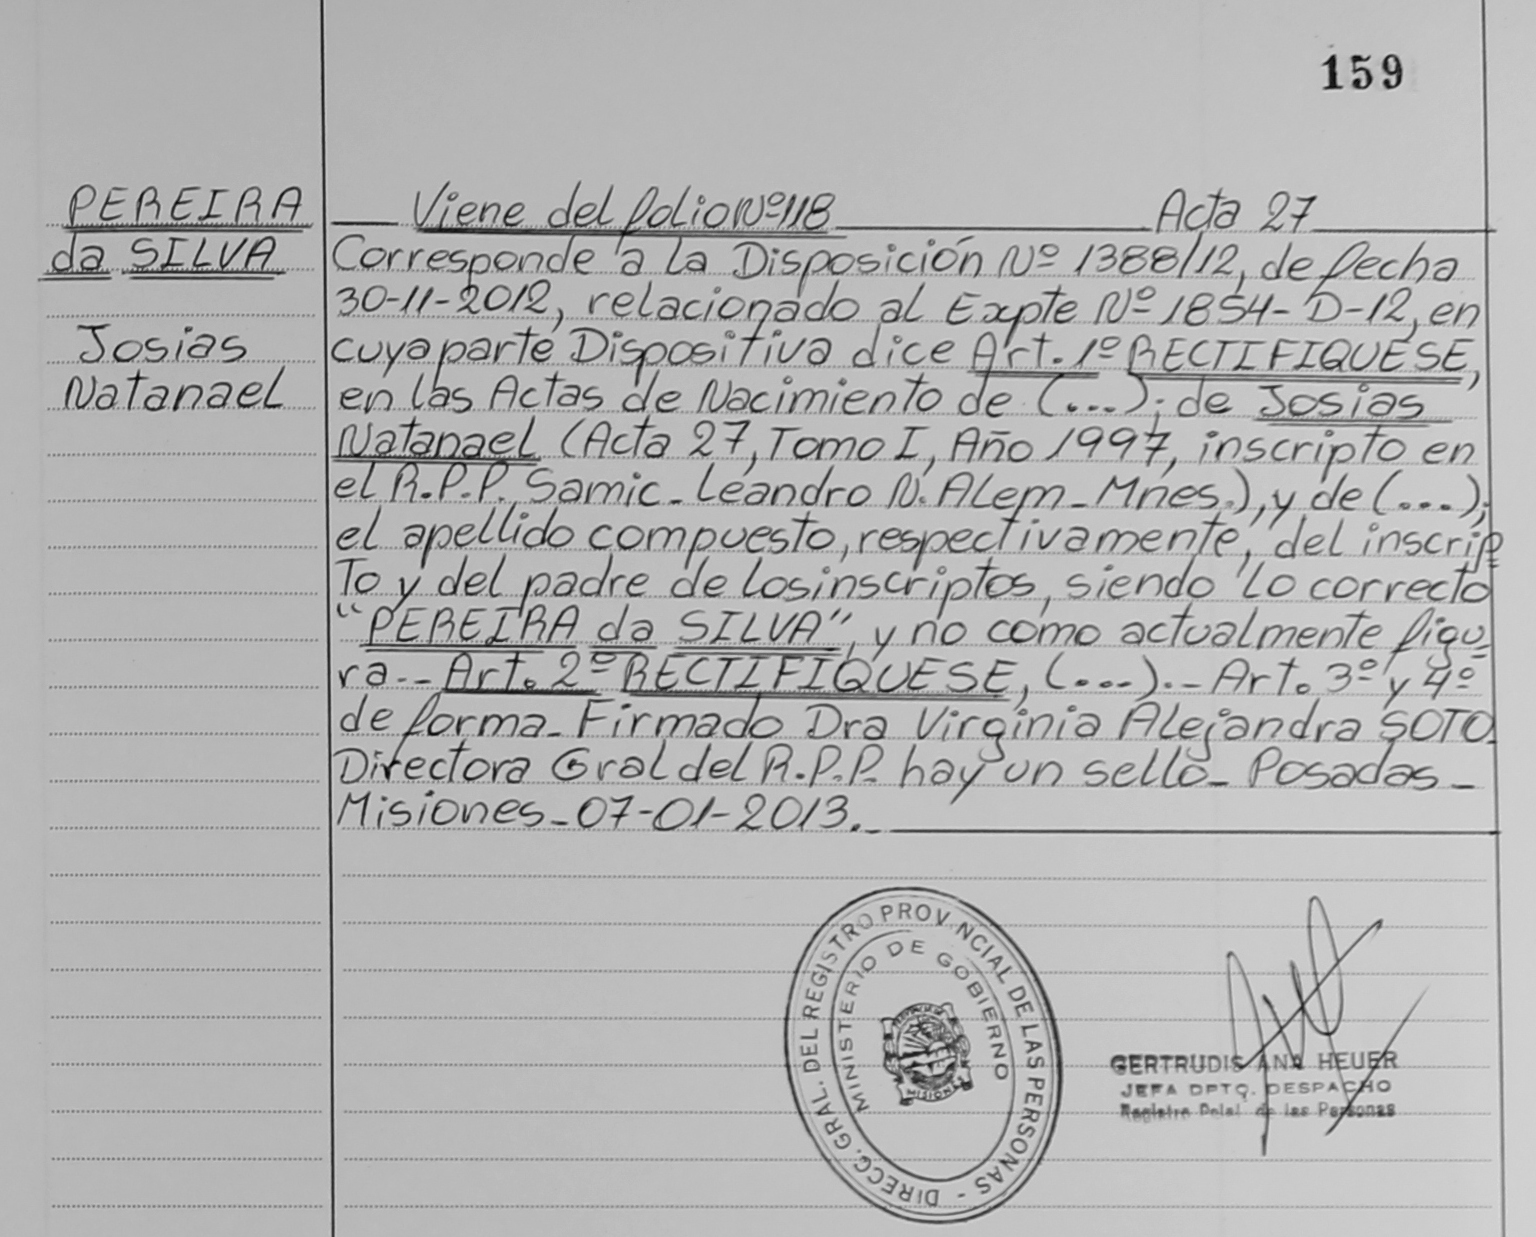 159
PEREIRA
da SILVA
Josias
Natanael
Viene del folio Nº 118 Acta 27
Corresponde a la Disposición Nº 1388/12, de fecha
30-11-2012, relacionado al Expte Nº 1854-D-12, en
cuya parte Dispositiva dice Art. 1º RECTIFIQUESE,
en las Actas de Nacimiento de (...); de Josias
Natanael (Acta 27, Tomo I, Año 1997, inscripto en
el R.P.P. Samic - Leandro N. Alem - Mnes.), y de (...);
el apellido compuesto, respectivamente, del inscrip
to y del padre de los inscriptos, siendo lo correcto
"PEREIRA da SILVA", y no como actualmente figu
ra.- Art. 2º RECTIFIQUESE, (...).- Art. 3º y 4º
de forma - Firmado Dra Virginia Alejandra SOTO
Directora Gral del R.P.P. hay un sello - Posadas -
Misiones - 07-01-2013.-
DIRECC. GRAL. DEL REGISTRO PROVINCIAL DE LAS PERSONAS -
MINISTERIO DE GOBIERNO
MISIONES
GERTRUDIS ANA HEUER
JEFA DPTO. DESPACHO
Registro Pcial de las Personas